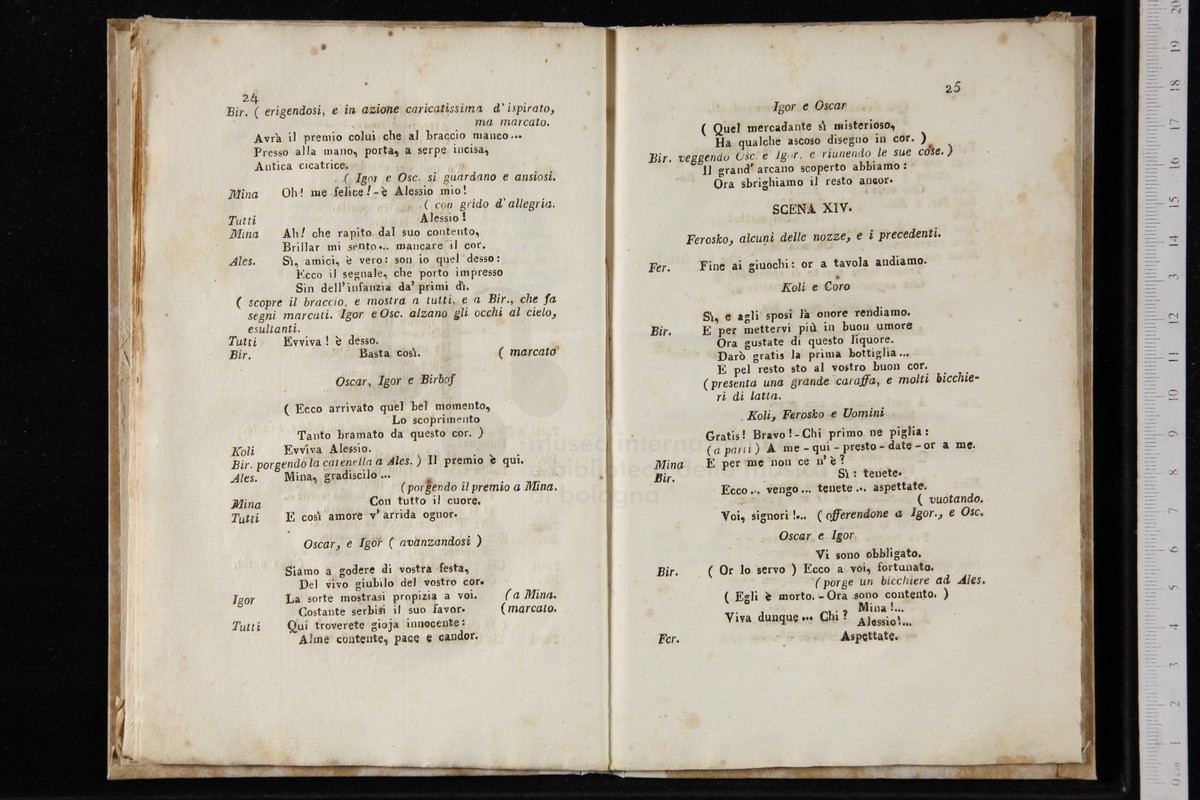 24
Bir. ( erigendosi, e in azione caricatissima d' ispirato,
ma marcato.
Avrà il premio colui che al braccio manco...
Presso alla mano, porta, a serpe incisa,
Antica cicatrice.
( Igor e Osc. si guardano e ansiosi.
Mina Oh! me felice!-è Alessio mio!
( con grido d'allegria.
Tutti Alessio!
Mina Ah! che rapito dal suo contento,
Brillar mi sento... mancare il cor.
Ales. Sì, amici, è vero: son io quel desso:
Ecco il segnale, che porto impresso
Sin dell'infanzia da' primi dì.
( scopre il braccio, e mostra a tutti, e a Bir., che fa
segni marcati. Igor e Osc. alzano gli occhi al cielo,
esultanti.
Tutti Evviva! è desso.
Bir. Basta così. ( marcato
Oscar, Igor e Birbof
( Ecco arrivato quel bel momento,
Lo scoprimento
Tanto bramato da questo cor. )
Koli Evviva Alessio.
Bir. porgendo la catenella a Ales. ) Il premio è qui.
Ales. Mina, gradiscilo ...
(porgendo il premio a Mina.
Mina Con tutto il cuore.
Tutti E così amore v' arrida ognor.
Oscar, e Igor ( avanzandosi )
Siamo a godere di vostra festa,
Del vivo giubilo del vostro cor.
Igor La sorte mostrasi propizia a voi. (a Mina.
Costante serbisi il suo favor. (marcato.
Tutti Qui troverete gioja innocente:
Alme contente, pace e candor.
25
Igor e Oscar
( Quel mercadante sì misterioso,
Ha qualche ascoso disegno in cor. )
Bir. veggendo Osc. e Igor. e riunendo le sue cose.)
Il grand' arcano scoperto abbiamo:
Ora sbrighiamo il resto ancor.
SCENA XIV.
Ferosko, alcuni delle nozze, e i precedenti.
Fer. Fine ai giuochi: or a tavola andiamo.
Koli e Coro
Sì, e agli sposi là onore rendiamo.
Bir. E per mettervi più in buon umore
Ora gustate di questo liquore.
Darò gratis la prima bottiglia...
E pel resto sto al vostro buon cor.
(presenta una grande caraffa, e molti bicchie-
ri di latta.
Koli, Ferosko e Uomini
Gratis! Bravo!-Chi primo ne piglia:
(a parti) A me-qui-presto-date-or a me.
Mina E per me non ce n' è?
Bir. Sì: tenete.
Ecco... vengo... tenete... aspettate.
( vuotando.
Voi, signori!... (offerendone a Igor., e Osc.
Oscar e Igor
Vi sono obbligato.
Bir. ( Or lo servo ) Ecco a voi, fortunato.
(porge un bicchiere ad Ales.
( Egli è morto.-Ora sono contento. )
Viva dunque... Chi? Mina!...
Alessio!...
Fer. Aspettate.
museo interna
e biblioteca della musica
di bologna